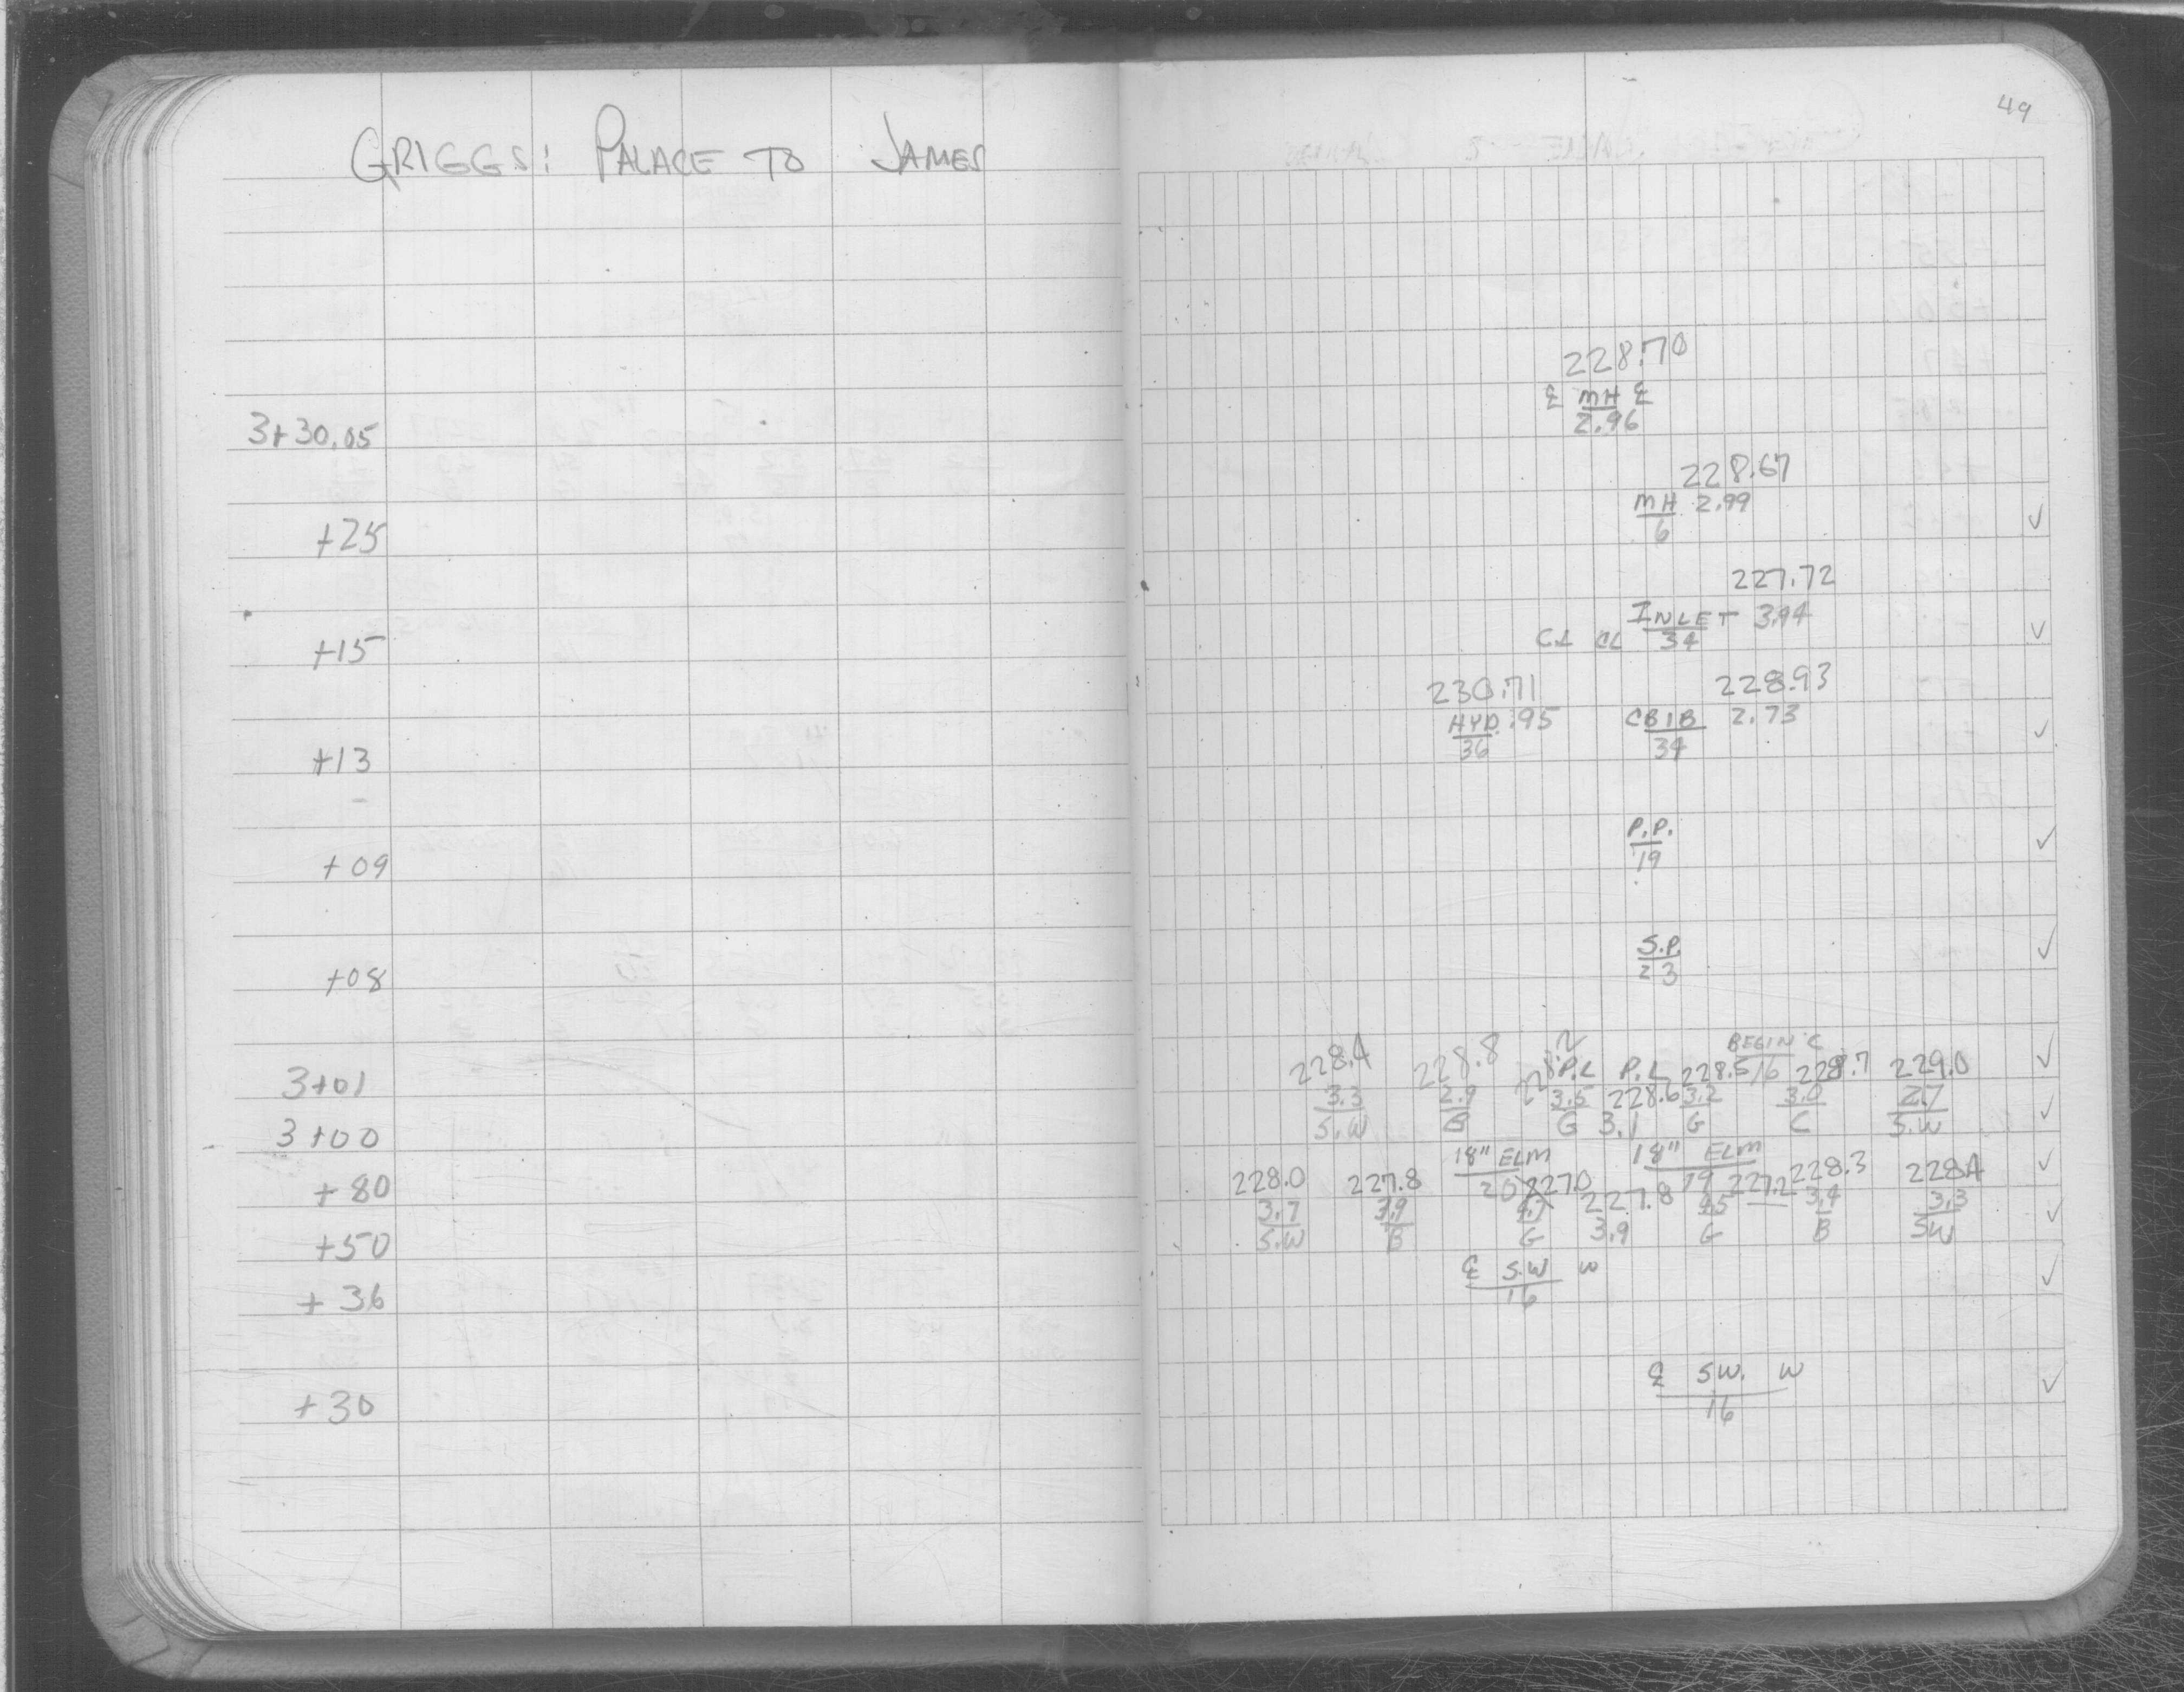 49
GRIGGS: PALACE TO JAMES
228.70
℄ MH ℄
3+30.05 2.96
228.67
MH 2.99
+25 6 ✓
227.72
INLET 3.94
+15 CL CL 34 ✓
230.71 228.93
HYD. .95 CBIB 2.73 ✓
+13 36 34
P.P. ✓
+09 19
S.P. ✓
+08 23
BEGIN C ✓
3+01 228.4 228.8 228.2 P.L P.L 228.5 16 228.7 229.0
3.3 2.9 3.5 228.6 3.2 3.0 2.7 ✓
3+00 S.W B G 3.1 G C S.W
18" ELM 18" ELM ✓
+80 228.0 227.8 20 227.0 227.8 19 227.2 228.3 228.4
3.7 3.9 4.7 4.5 3.4 3.3 ✓
+50 S.W B G 3.9 G B SW
℄ S.W W ✓
+36 16
℄ SW. W ✓
+30 16